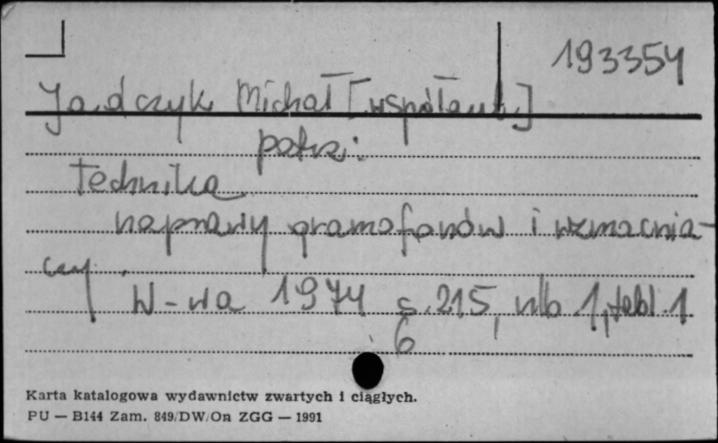 193354
Jadczyk Michał [współaut.]
patrz:
Technika
naprawy gramofonów i wzmacnia-
czy.
W-wa 1974 s. 215, nlb 1, tabl. 1
6
Karta katalogowa wydawnictw zwartych i ciągłych.
PU — B144 Zam. 849/DW/On ZGG — 1991